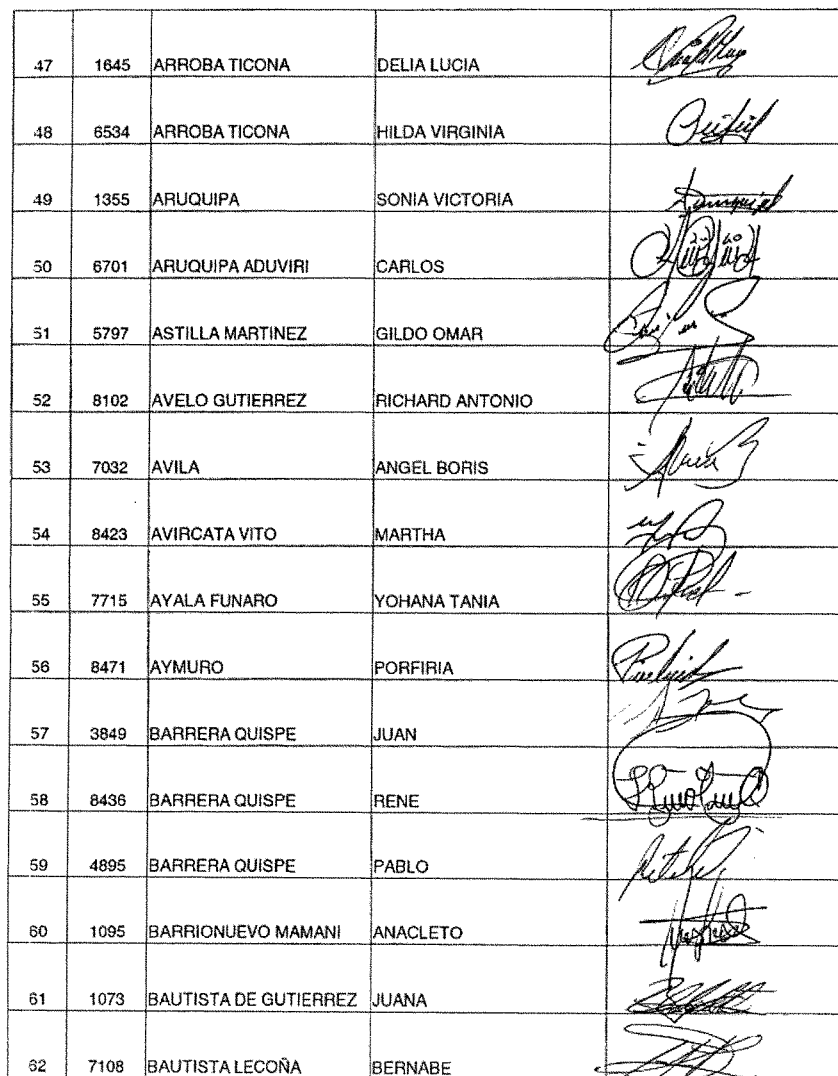 47 1645 ARROBA TICONA DELIA LUCIA
48 6534 ARROBA TICONA HILDA VIRGINIA
49 1355 ARUQUIPA SONIA VICTORIA
50 6701 ARUQUIPA ADUVIRI CARLOS
51 5797 ASTILLA MARTINEZ GILDO OMAR
52 8102 AVELO GUTIERREZ RICHARD ANTONIO
53 7032 AVILA ANGEL BORIS
54 8423 AVIRCATA VITO MARTHA
55 7715 AYALA FUNARO YOHANA TANIA
56 8471 AYMURO PORFIRIA
57 3849 BARRERA QUISPE JUAN
58 8436 BARRERA QUISPE RENE
59 4895 BARRERA QUISPE PABLO
60 1095 BARRIONUEVO MAMANI ANACLETO
61 1073 BAUTISTA DE GUTIERREZ JUANA
62 7108 BAUTISTA LECOÑA BERNABE